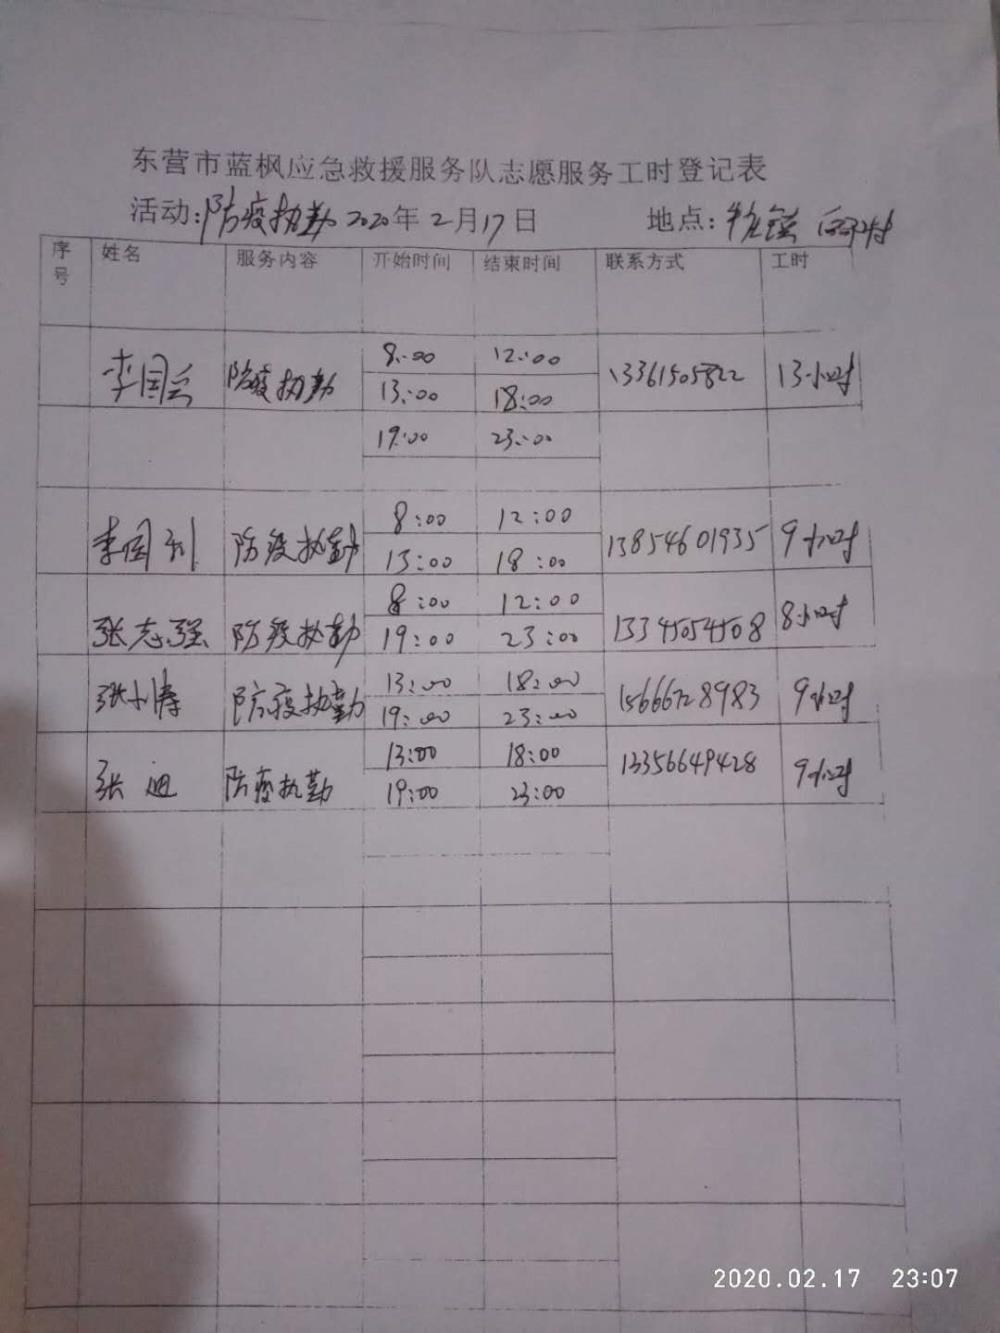 东营市蓝枫应急救援服务队志愿服务工时登记表
活动:防疫执勤 2020年2月17日 地点:
序号 姓名 服务内容 开始时间 结束时间 联系方式 工时
李国 防疫执勤 8:00 12:00 13361505822 13小时
13:00 18:00
19:00 23:00
李国利 防疫执勤 8:00 12:00 13854601935 9小时
13:00 18:00
张志强 防疫执勤 8:00 12:00 13345054508 8小时
19:00 23:00
张小涛 防疫执勤 13:00 18:00 15666728983 9小时
19:00 23:00
张迪 防疫执勤 13:00 18:00 13356649428 9小时
19:00 23:00
2020.02.17 23:07